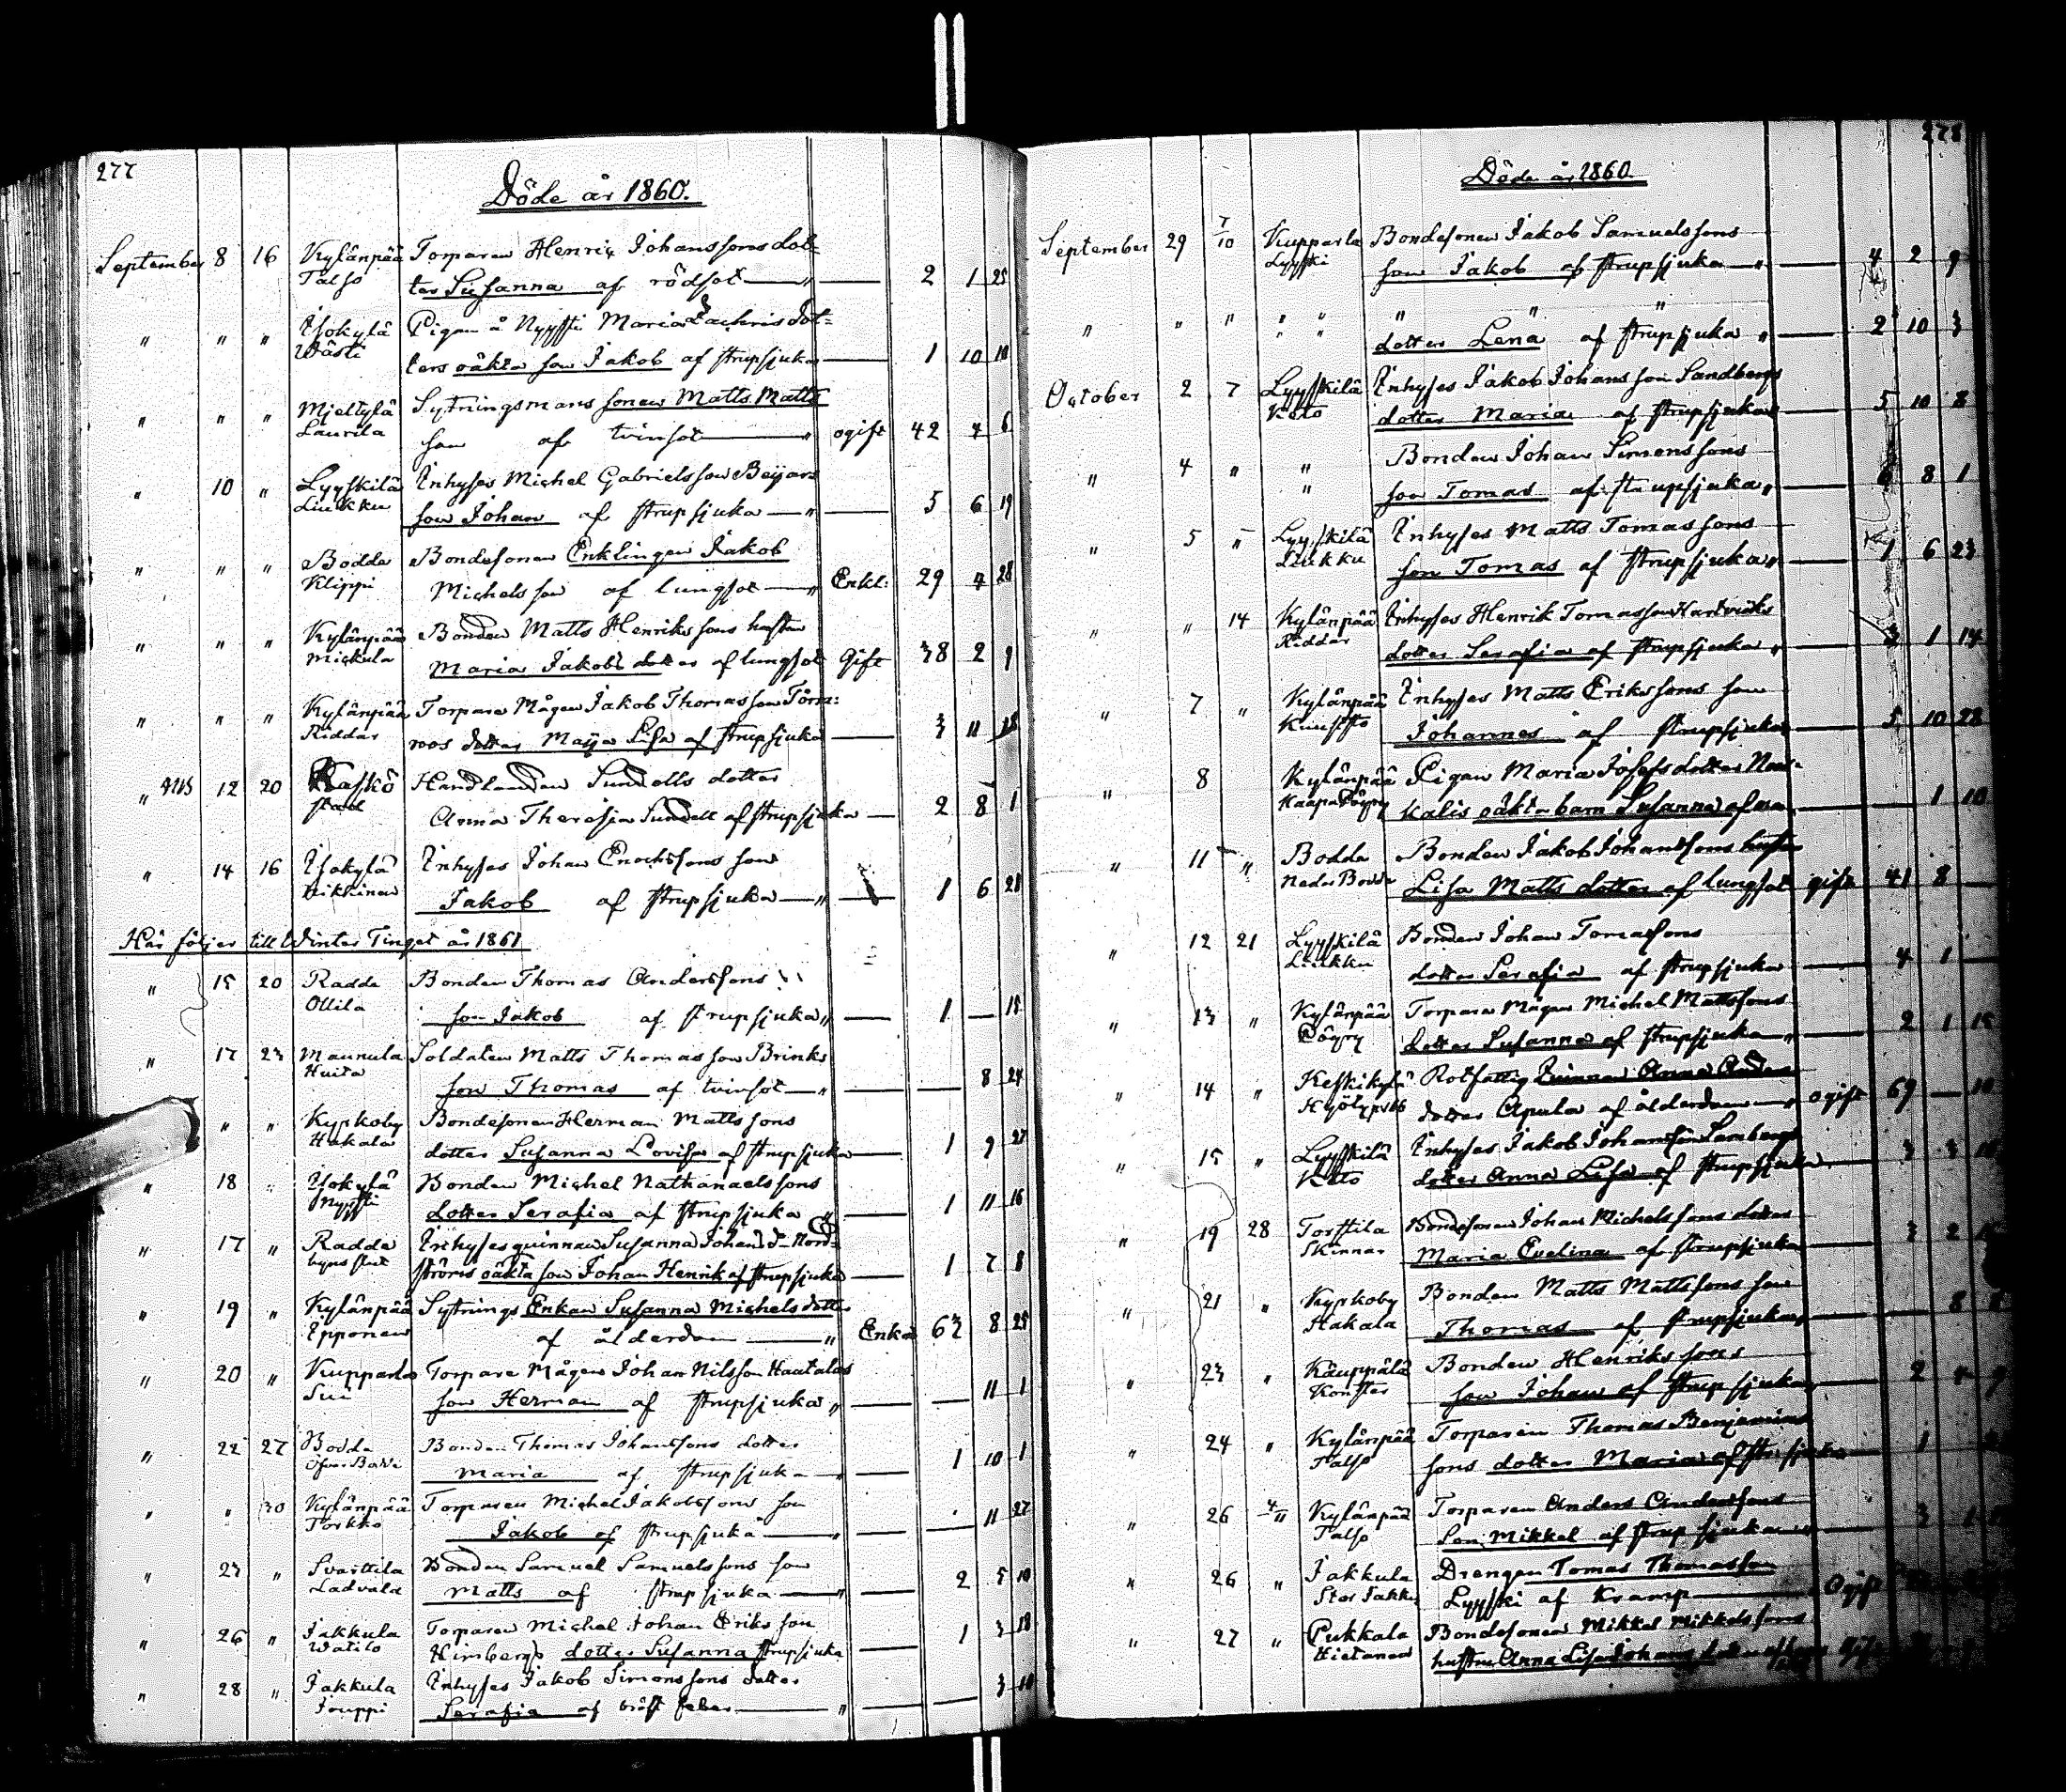 277
Döde år 1860.
September 8 16 Kylänpää Torparen Henric Johanssons dot-
Talso ter Susanna af rödsot — " — 2 1 25
" " " Isokylä Pigan å Nyysti Maria Zachrisdot-
Wästi ters oäkta son Jakob af strupsjuka — 1 10 10
" " " Mieltylä Sytningsmans sonen Matts Matts
Laurila son af tvinsot — " ogift 42 4 6
" 10 " Lyyskilä Inhyses Michel Gabrielsson Beijars
Liukku son Johan af strupsjuka — " — 5 6 19
" " " Bodda Bondesonen Enklingen Jakob
Klippi Michelsson af lungsot — " Enkl: 29 4 28
" " " Kylänpää Bonden Matts Henrikssons hustru
Mickula Maria Jakobs dotter af lungsot Gift 38 2 9
" " " Kylänpää Torpare Mågen Jakob Thomasson Törn-
Riddar roos dotter Maija Lisa af strupsjuka — 3 11 18
" 12 20 Kaskö Handlanden Sundells dotter
stad Anna Theresia Sundell af strupsjuka — 2 8 1
" 14 16 Isokylä Inhyses Johan Enochssons son
Jakob af strupsjuka — " — 1 6 21
Här följer till Winter Tinget år 1861
" 15 20 Radda Bonden Thomas Anderssons
Ollila son Jakob af strupsjuka " — 1 — 15
" 17 23 Maunula Soldaten Matts Thomasson Brinks
Huita son Thomas af tvinsot — " — — 8 24
" " Kyrkoby Bondesonen Herman Mattssons
Hakala dotter Susanna Lovisa af strupsjuka — 1 9 27
" 18 " Isokylä Bonden Michel Nathanaelssons
Nyysti dotter Serafia af strupsjuka " — 1 11 16
" 17 " Radda Inhysesquinnan Susanna Johansd-r Nord-
ströms oäkta son Johan Henrik af strupsjuka — 1 7 8
" 19 " Kylänpää Sytnings Enkan Susanna Michelsdotter
Epponen af ålderdom — " Enka 62 8 25
" 20 " Kupparla Torpare Mågen Johan Nilsson Haatalas
son Herman af strupsjuka " — — 11 1
" 22 27 Bodda Bonden Thomas Johanssons dotter
Öfver Bodda Maria af strupsjuka — " — 1 10 1
" " 30 Kylänpää Torparen Michel Jakobssons son
Torkko Jakob af strupsjuka — " — — 11 27
" 23 " Svarttila Bonden Samuel Samuelssons son
Ladvala Matts af strupsjuka — " — 2 5 10
" 26 " Jakkula Torparen Michel Johan Eriksson
Watilo Himbergs dotter Susanna strupsjuka — 1 3 18
" 28 " Jakkula Inhyses Jakob Simonssons dotter
Jouppi Serafia af bröst feber — " — — 3 10
278
Döde år 1860.
September 29 7/10 Kupparla Bondesonen Jakob Samuelssons
Lyyski son Jakob af strupsjuka — " — 4 2 9
" " " " " " "
dotter Lena af strupsjuka " — 2 10 3
October 2 7 Lyyskilä Inhyses Jakob Johansson Sandbergs
Keto dotter Maria af strupsjuka — 5 10 8
" 4 " " Bonden Johan Simonssons
" son Tomas af strupsjuka " — 6 8 1
" 5 " Lyyskilä Inhyses Matts Tomassons
Liukku son Tomas af strupsjuka " — 1 6 23
" " 14 Kylänpää Inhyses Henrik Tomasson Hartviks
Riddar dotter Serafia af strupsjuka " — 3 1 14
" 7 " Kylänpää Inhyses Matts Erikssons son
Johannes af strupsjuka — 5 10 28
" 8 Kylänpää Pigan Maria Josefsdotter
oäkta barn Susanna af — — 1 10
" 11 " Bodda Bonden Jakob Johanssons hustru
Neder Bodda Lisa Matts dotter af lungsot gift 41 8 —
" 12 21 Lyyskilä Bonden Johan Tomassons
Liukku dotter Serafia af strupsjuka — 4 1 —
" 13 " Kylänpää Torpare Mågen Michel Mattssons
Pögry dotter Susanna af strupsjuka — 2 1 15
" 14 " Keskikylä Rotfattig Quinnan Anna Anders
dotter Apula af ålderdom — " ogift 69 — 10
" 15 " Lyyskilä Inhyses Jakob Johansson Sandbergs
Keto dotter Anna Lisa af strupsjuka — 3 3
" 19 28 Torstila Bondesonen Johan Michelssons dotter
Skinnar Maria Evelina af strupsjuka — 3 2
" 21 " Kyrkoby Bonden Matts Mattssons son
Hakala Thomas af strupsjuka — — 8
" 23 " Käuppälä Bonden Henrikssons
Konster son Johan af strupsjuka — 2 4 9
" 24 " Kylänpää Torparen Thomas Benjamins
Talso sons dotter Maria af strupsjuka — 1
" 26 4/11 Kylänpää Torparen Anders Anderssons
Talso Son Mikkel af strupsjuka " — 3 1
" 26 " Jakkula Drengen Tomas Thomasson
Stor Jakku Lyyski af Kramp — Ogift
" 27 " Pukkala Bondesonen Mikkel Mikkelssons
Hietanen hustru Anna Lisa Johans dotter